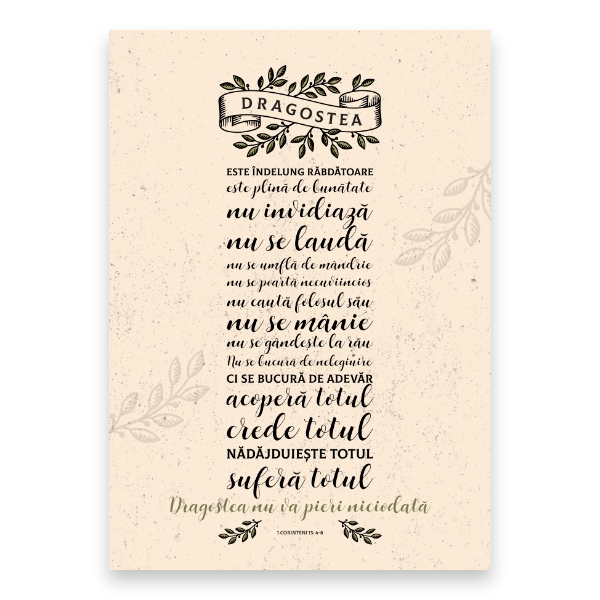 DRAGOSTEA
ESTE ÎNDELUNG RĂBDĂTOARE
este plină de bunătate
nu invidiază
nu se laudă
nu se umflă de mândrie
nu se poartă necuviincios
nu caută folosul său
nu se mânie
nu se gândește la rău
Nu se bucură de nelegiuire
CI SE BUCURĂ DE ADEVĂR
acoperă totul
crede totul
NĂDĂJDUIEȘTE TOTUL
suferă totul
Dragostea nu va pieri niciodată
1 CORINTENI 13: 4-8